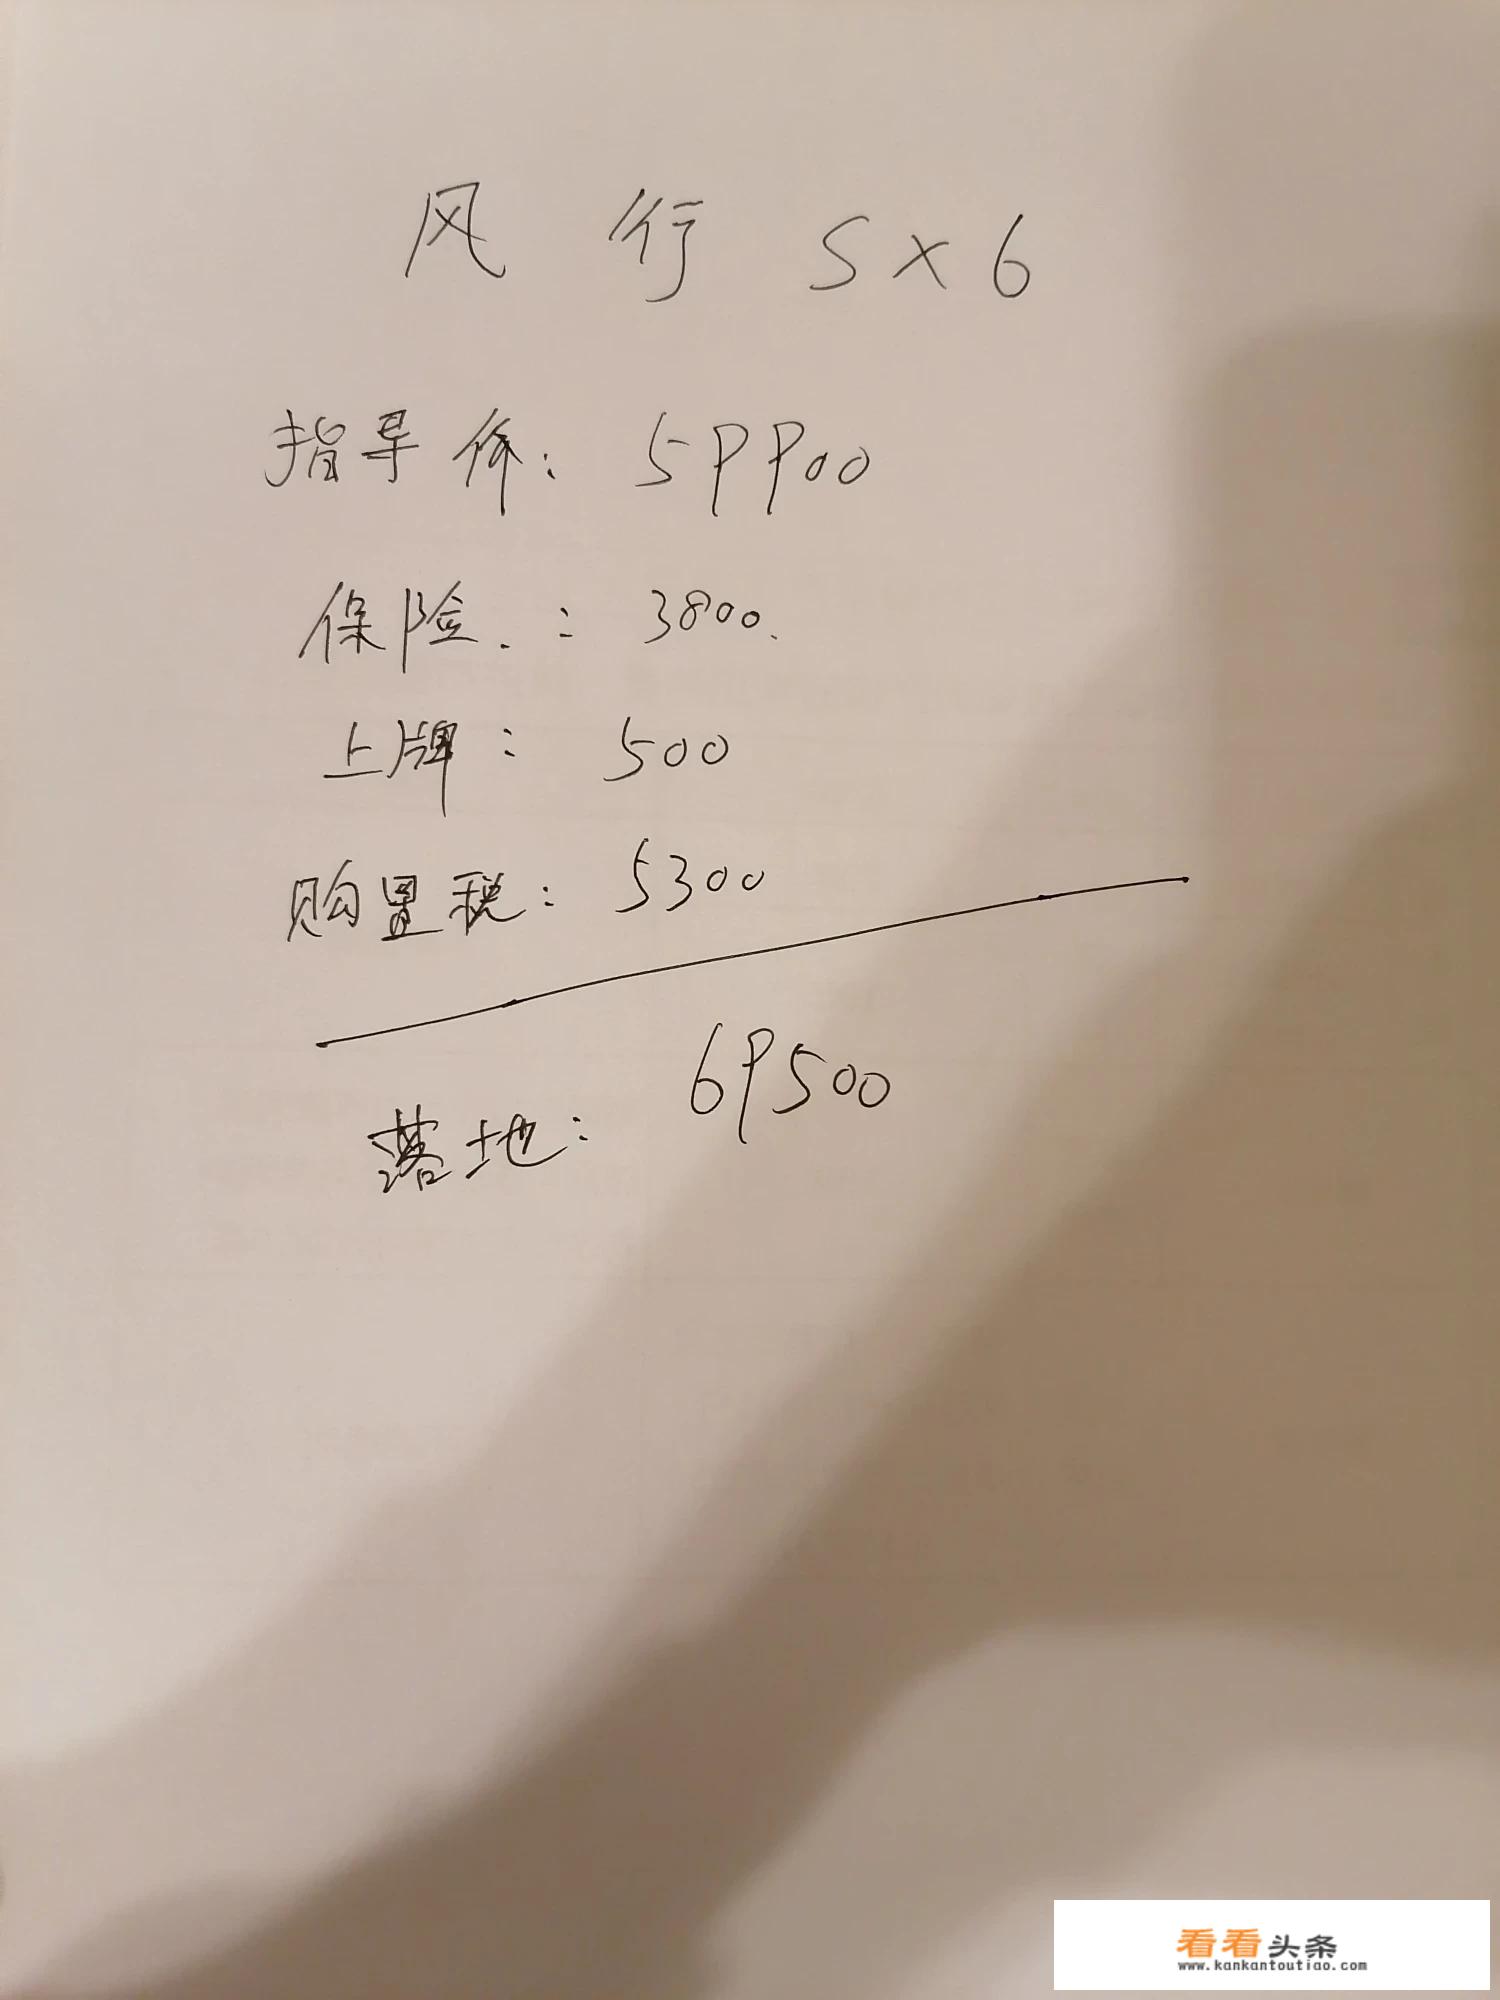 风行 SX6
指导价: 59900
保险.: 3800.
上牌: 500
购置税: 5300
69500
落地:
看看头条
www.kankantoutiao.com